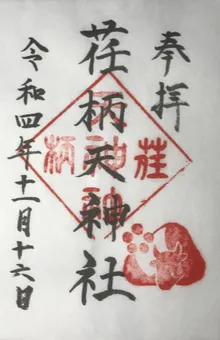 奉拝
荏柄天神社
荏柄
天神
令和四年十一月十六日